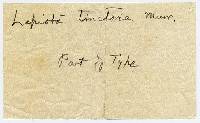 Lepiota tinctoria Murr.
Part of Type